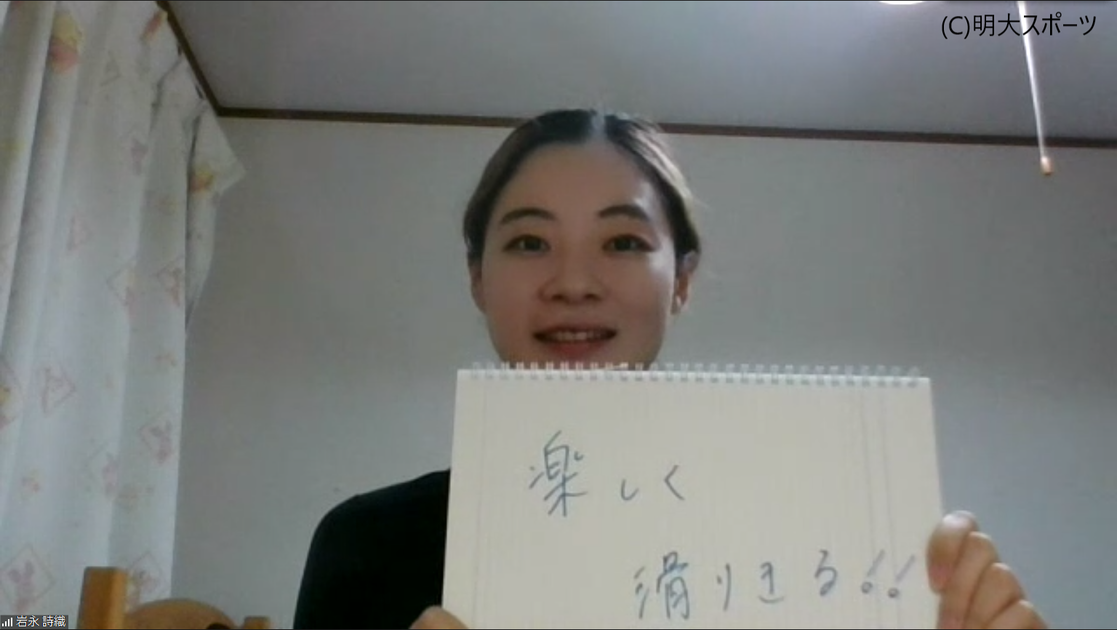 (C)明大スポーツ
楽しく
滑りきる!!
岩永 詩織